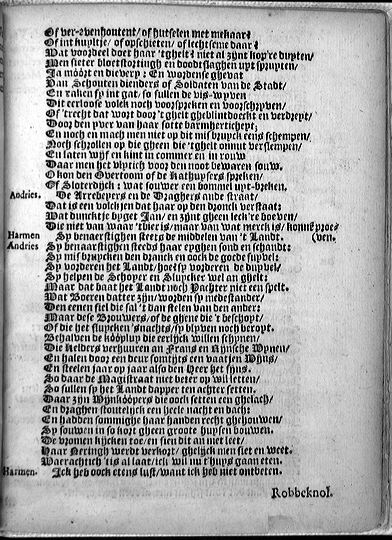 Of ver-evenhoutent/ of hutselen met mekaar:
Of int kuyltje/ of opschieten/ of lechtseme daar:
Wat voordeel doet haar 'tghelt: niet al zijnt kop're duyten/
Men sieter bloetstortingh en doodtslaghen upt spruyten/
Ja móórt en dievery: En wordense ghevat
Van Schouten dienders of Soldaten van de Stadt/
En raken sp int gat, so sullen de vis-wyven
Dit eerloose volck noch voorspreken en voorschryven/
Of 'trecht dat wort door 't gheit gheblindoeckt en verdreyt/
Door den yver van haar sotte barmhertichept;
En noch en mach men niet op dit misbruyck eens schempen/
Noch schrollen op die gheen die 'tghelt onnut verslempen/
En laten wijf en kint in commer en in rouw
Daar men het hyrich voor den noot bewaren souw.
O kon den Overtoom of de Kathuysers spreken/
Of Sloterdijck: wat souwer een bommel uyt-breken.
Andries. De Arrebeyers en de Draghers ande straat/
Dat is een volckjen dat haar op den dronck verstaat:
Wat duncktje byget Jan/ en zynt gheen leck're boeven/
Die niet van waar 'tbier is/ maar van wat merck is/ konne proe-
(ven.
Harmen Sy benaerstighen steets de middelen van 't Landt.
Andries Sy benaarstighen steeds haar eyghen sond en schandt:
Sy misbruycken den dranck en oock de goede supvel:
Sy vorderen het Landt/ hoe! sy vorderen de duyvel/
Sy helpen de Schoyer en Sluycker wel an ghelt:
Maar dat baat het Landt noch Pachter niet een spelt.
Wat Boeren datter zijn/ worden sp niedestander/
Den eenen siel die sal 't dan stelen van den ander:
Maar dese Brouwers/ of de ghene die 't beschopt/
Of die het sluycken 'snachts/ sp blyven noch beropt.
Behalven de kóópluy die eerlijck willen schynen/
Die Kelders verhuuren an Frans en Rynsche Wynen/
En halen door een deur somtyts een vaatjen Wijns/
En steelen jaar op jaar also den Heer het syns.
So daar de Magistraat niet beter op wil letten/
So sullen sp het Landt dapper ten achter setten.
Daar zijn Wijnkóópers die oock setten een ghelach/
En draghen stoutelijck een heele nacht en dach:
En hadden sommighe haar handen recht ghehouwen/
Sy souwen in so kort gheen groote huysen bouwen.
De vromen kijcken toe/ en sien dit an met leet/
Haar Neringh werdt verkort/ ghelijck men siet en weet.
Waerachtich 'tis al laat/ ick wil nu t'huys gaan eten.
Harmen. Ick heb oock etens lust/ want ick heb niet ontbeten.
Robbeknol.